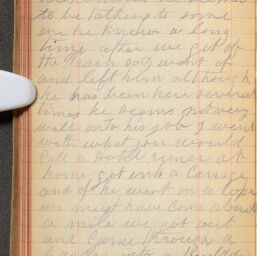 to be talking to some
one he knew a long
time after we got of
the train Boy went of
and left him although
he has been here several
times he seems not very
well onto his job I went
with what you would
Call a Hotel runer at
home got into a Carrage
and of we went on a lope
we might have come about
a mile we got out
and Came through a
into a